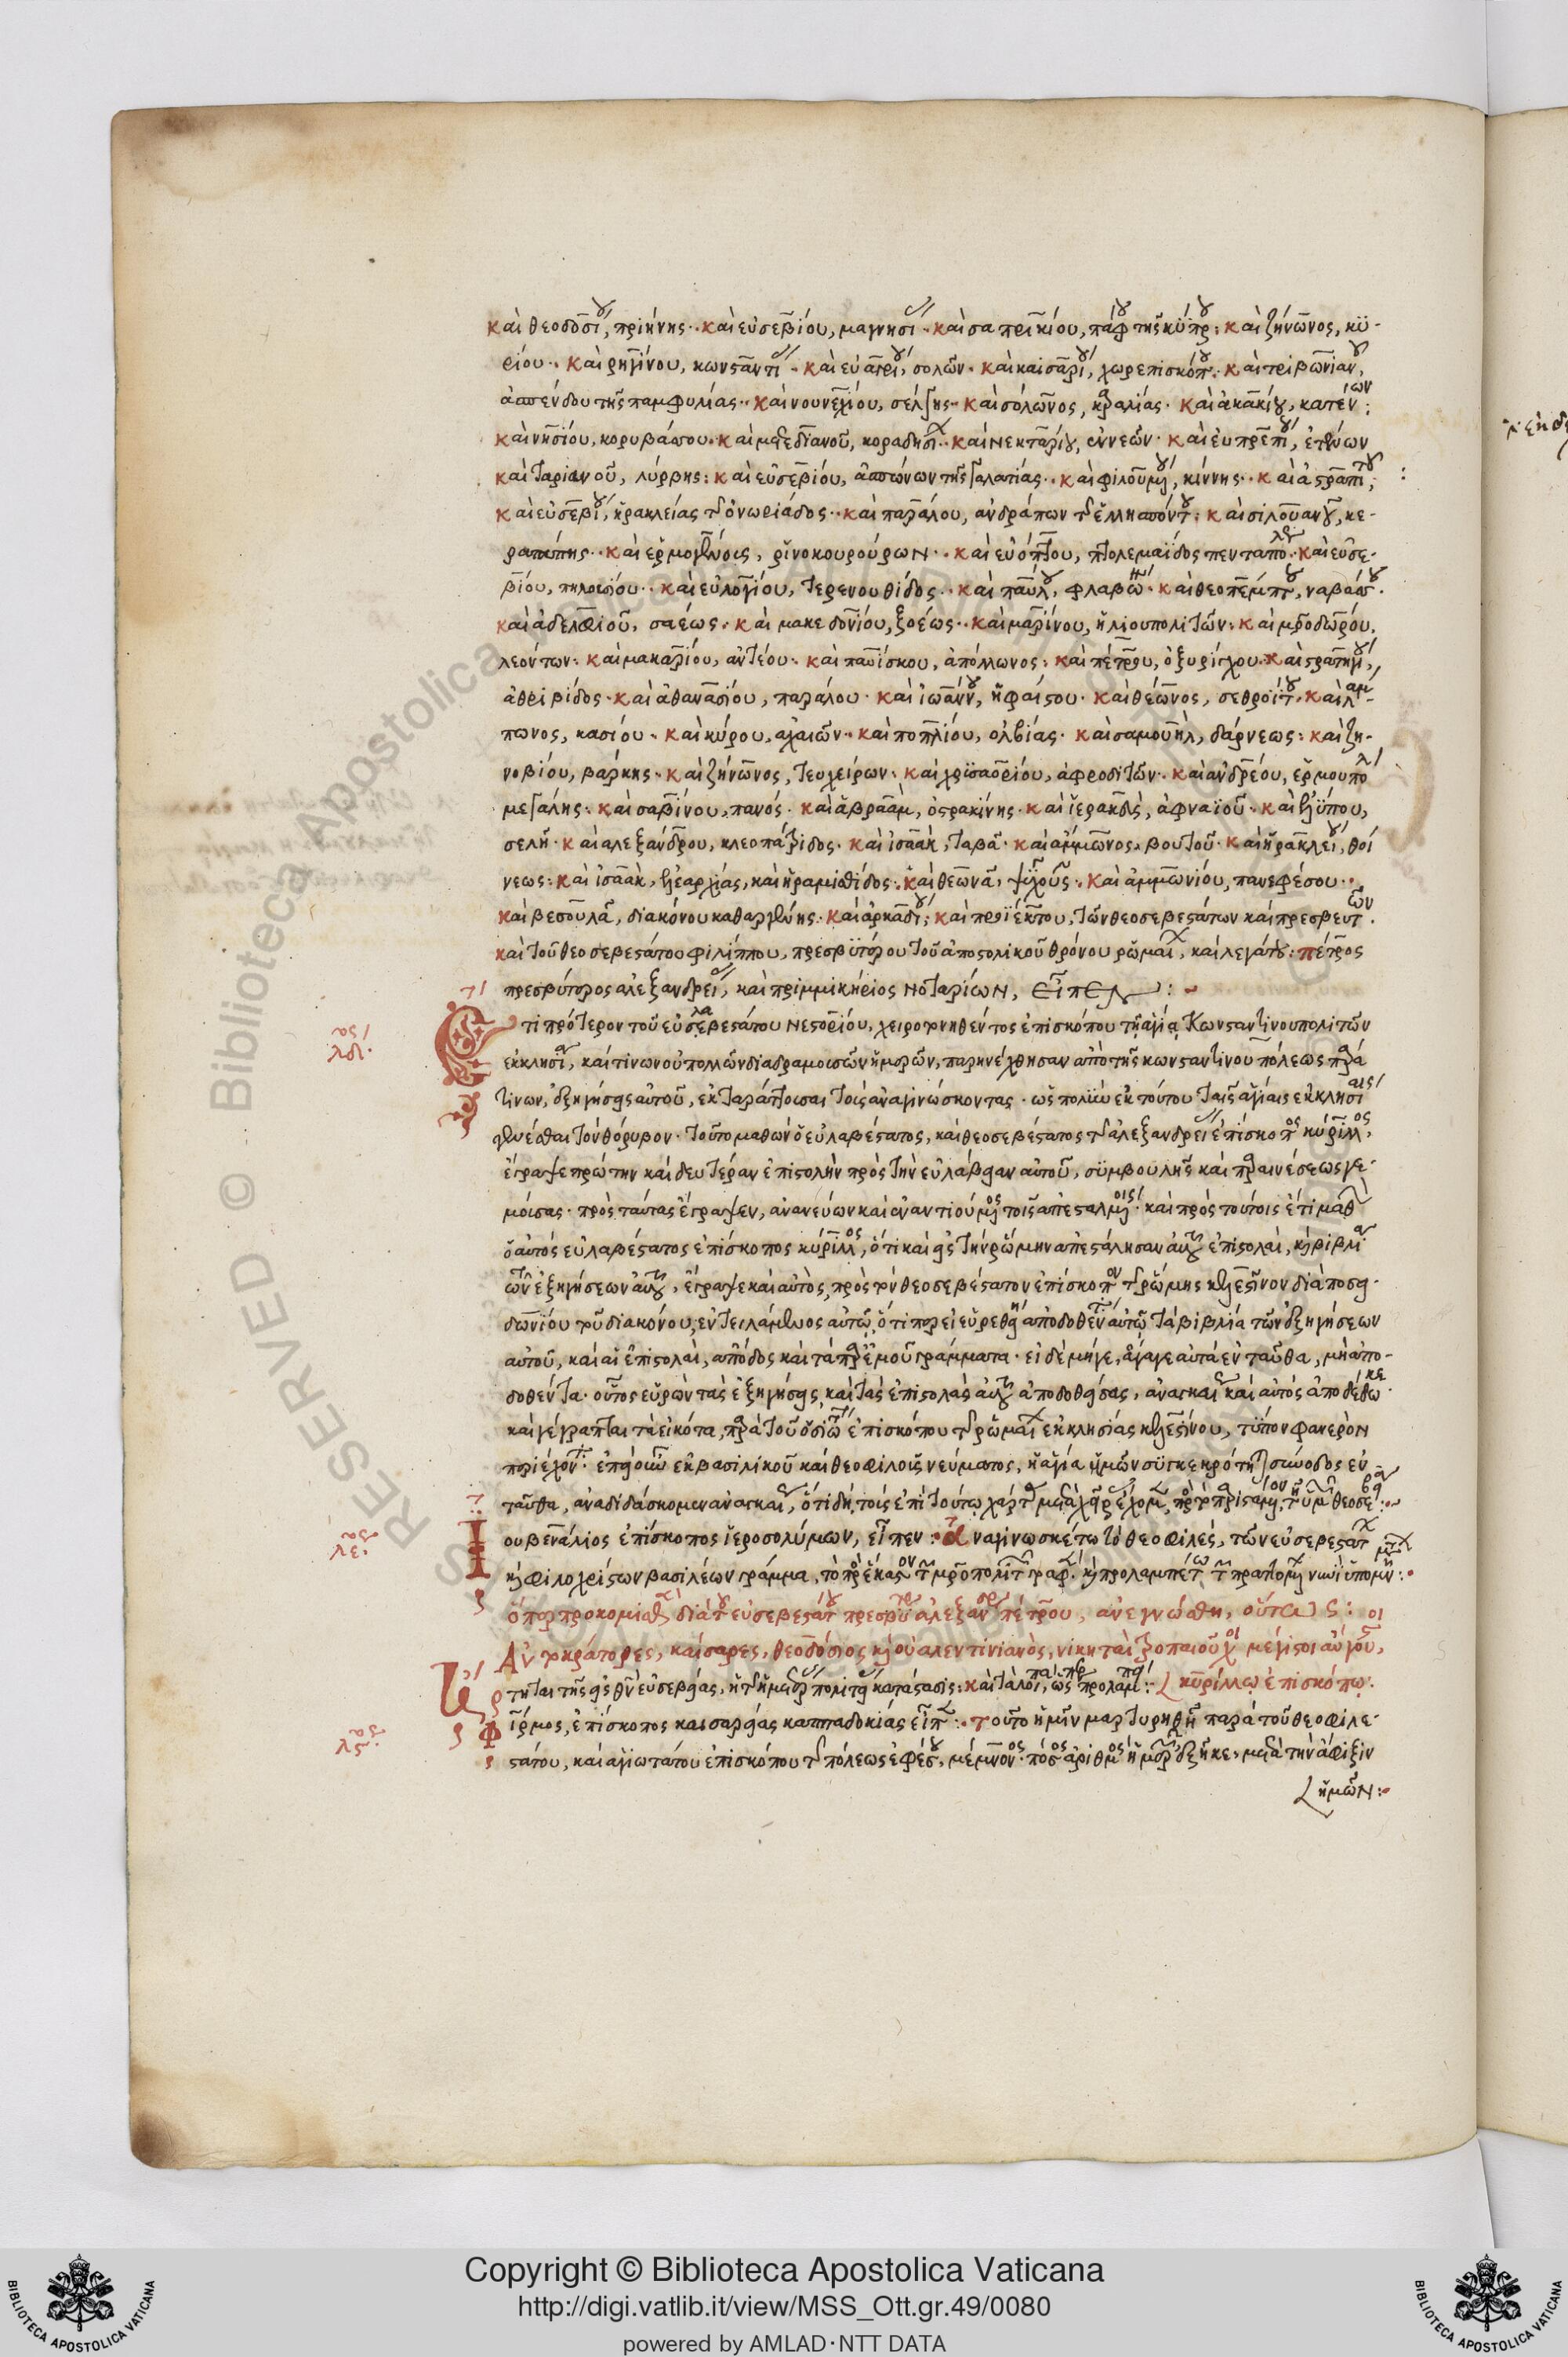 καὶ θεοδοσίου, πριήνης·· καὶ εὐσεβίου, μαγνησί·· καὶ σαπρικίου, πάφου τῆς κύπρου: καὶ ζήνωνος, κϋ-
ρίου·· καὶ ρηγίνου, κωνσταντί·· καὶ εὐαγρίου, σολῶν· καὶ καισαρίου, χωρεπισκόπου· καὶ τριβωνιανοῦ,
ἀσπένδου τῆς παμφυλίας·· καὶ νουνεχίου, σέλγης·· καὶ σόλωνος, καραλίας· καὶ ἀκακίου, κατένων;
καὶ νησίου, κορυβάσσου· καὶ ματιδιανοῦ, κορακησί·· καὶ νεκταρίου, ἐννεῶν· καὶ εὐπρεπίου,
καὶ ταριανοῦ, λύρβης: καὶ εὐσεβίου, ἀσπώνων τῆς γαλατίας·· καὶ φιλουμένου, κίννης··
καὶ εὐσεβίου, ἡρακλείας τῆς ὀνωριάδος·· καὶ παραλίου, ανδράπων τῆς ἑλλησπόντου: καὶ σιλουανοῦ, κε-
ραπέπης·· καὶ ἑρμογένους, ῥινοκουρούρων·· καὶ εὐοπτίου, πτολεμαΐδος πενταπόλεως·· καὶ εὐσε-
βίου, πηλουσίου·· καὶ εὐλογίου, τερενουθίδος·· καὶ παύλου, φλαβω· καὶ θεοπέμπτου, καβάσου·
καὶ ἀδελφίου, σαέως· καὶ μακεδονίου, ξοέως·· καὶ μαρίνου, ἡλιουπολιτῶν: καὶ μητροδώρου,
λεόντων: καὶ μακαρίου, ἀνταίου·· καὶ παβίσκου, ἀπόλλωνος: καὶ πέτρου, ὀξυρίγχου· καὶ στρατηγίου,
ἀθριβίδος· καὶ ἀθανασίου, παραλίου· καὶ ἰωάννου, ἡφαίστου· καὶ θέωνος, σεθροΐτου· καὶ λαμ-
πωνος, κασίου·· καὶ κύρου, αχαιῶν·· καὶ ποπλίου, ολβίας· καὶ σαμουὴλ, δάρνεως: καὶ ζη-
νοβίου, βάρκης· καὶ ζήνωνος, τευχείρων· καὶ χρϊσαορίου, ἀφροδιτῶν·· καὶ ανδρέου, ἑρμουπόλεως
μεγάλης· καὶ σαβίνου, πανός· καὶ ἀβραὰμ, ὀστρακίνης· καὶ ἱέρακος, ἀφναϊου· καὶ ἀλυπίου,
σέλη· καὶ αλεξάνδρου, κλεοπάτριδος· καὶ ἰσαὰκ, ταβᾶ· καὶ ἄμμωνος, βουτοῦ· καὶ ἡρακλείου, θοί
νεως: καὶ ἰσαὰκ, ἐλεαρχίας, καὶ ἡραμιθίδος· καὶ θεωνᾶ, ψύχους·· καὶ ἀμμωνίου, πανεφέσου··
καὶ βεσουλᾶ, διακόνου καθαργένης· καὶ ἀρκαδίου: καὶ προϊέκτου, τῶν θεοσεβεστάτων καὶ πρεσβευτῶν·
καὶ τοῦ θεοσεβεστάτου φιλίππου, πρεσβϋτέρου τοῦ ἀποστολικοῦ θρόνου ῥώμαι, καὶ λεγάτου: πέτρος
πρεσβύτερος αλεξανδρεί, καὶ πριμμικήριος νοταρίων, εἶπεν:
Ἔτι πρότερον τοῦ εὐλαβεστάτου νεστορίου, χειροτονηθέντος ἐπισκόπου τῆς ἁγίας κωνσταντινουπολιτῶν
ἐκκλησίας, καί τινων οὐ πολλῶν διαδραμουσῶν ἡμερῶν, παρηνέχθησαν ἀπὸ τῆς κωνσταντινουπόλεως παρά
τινων, ἐξηγήσεις αὐτοῦ, ἐκταράττουσαι τοὺς ἀναγινώσκοντας· ὡς πολὺν ἐκ τούτου ταῖς ἁγίαις ἐκκλησίαις
γενέσθαι τὸν θόρυβον· τοῦτο μαθὼν ὁ εὐλαβέστατος, καὶ θεοσεβέστατος τῆς ἀλεξανδρεί ἐπίσκοπος κύριλλος,
ἔγραψε πρώτην καὶ δευτέραν ἐπιστολὴν πρὸς τὴν εὐλάβειαν αὐτοῦ, σϋμβουλῆς καὶ παραινέσεως γε-
μούσας· πρὸς ταύτας ἔγραψεν, ἀνανεύων καὶ ἐναντιούμενος τοῖς ἀπεσταλμένοις· καὶ πρὸς τούτοις ἔτι μαθὼν
ὁ αὐτὸς εὐλαβέστατος ἐπίσκοπος κύριλλος, ὅτι καὶ εἰς τὴν ῥώμην ἀπεστάλησαν αὐτοῦ ἐπιστολαὶ, καὶ βιβλία
τῶν ἐξηγήσεων αὐτοῦ, ἔγραψε καὶ αὐτὸς, πρὸς τὸν θεοσεβέστατον ἐπίσκοπον τῆς ῥώμης κελεστῖνον διὰ ποσει-
δωνίου τοῦ διακόνου, ἐντειλάμενος αὐτῷ, ὅτιπερ εἰ εὑρεθείη ἀποδοθέντα αὐτῷ τὰ βιβλία τῶν ἐξηγήσεων
αὐτοῦ, καὶ αἱ ἐπιστολαὶ, ἀπόδος καὶ τὰ παρ' ἐμοῦ γράμματα· εἰ δὲ μήγε, ἄγαγε αὐτὰ ἐνταῦθα, μὴ ἀπο-
δοθέντα· οὗτος εὑρὼν τὰς ἐξηγήσεις, καὶ τὰς ἐπιστολὰς αὐτοῦ ἀποδοθείσας, ἀναγκαίως καὶ αὐτὸς ἀποδέδωκε·
καὶ γέγραπται τὰ εἰκότα, παρὰ τοῦ ὁσιωτάτου ἐπισκόπου τῆς ῥωμαί ἐκκλησίας κελεστίνου, τύπον φανερὸν
περιέχοντα· ἐπειδὴ οὖν ἐκ βασιλικοῦ καὶ θεοφιλοῦς νεύματος, ἡ ἁγία ἡμῶν σϋγκεκρότηται σύνοδος ἐν
ταῦθα, ἀναδιδάσκομεν ἀναγκαίως, ὅτι δὴ τοὺς ἐπὶ τούτῳ χάρτας μετὰ χεῖρας ἔχομεν,
ἰουβενάλιος ἐπίσκοπος ἱεροσολύμων, εἶπεν: ἀναγινωσκέτω τὸ θεοφιλὲς, τῶν εὐσεβεστάτων
καὶ φιλοχρίστων βασιλέων γράμμα, τὸ πρὸς ἕκαστον τῶν μητροπολιτῶν γραφέν·
ὅπερ προκομισθὲν διὰ τοῦ εὐσεβεστάτου πρεσβυτέρου ἀλεξανδρείας πέτρου, ἀνεγνώσθη, οὕτως:
Αὐτοκράτορες, καίσαρες, θεοδόσιος καὶ οὐαλεντινιανὸς, νικηταὶ τροπαιοῦχοι μέγιστοι αὔγουστοι,
ἤρτηται τῆς εἰς θεὸν εὐσεβείας, ἡ τῆς ἡμετέρας πολιτείας κατάστασις: καὶ τὰ λοι, ὡς προλαμ: κυρίλλῳ ἐπισκόπῳ:
φίρμος, ἐπίσκοπος καισαρείας καππαδοκίας εἶπεν: τοῦτο ἡμῖν μαρτυρηθῇ παρὰ τοῦ θεοφιλε-
στάτου, καὶ ἁγιωτάτου ἐπισκόπου τῆς πόλεως ἐφέσου, μέμνονος· πόσος ἀριθμὸς ἡμερῶν ἐξῆκε, μετὰ τὴν ἄφιξιν
ἡμῶν:
λδ
λε
λς
RESERVED © Biblioteca Apostolica Vaticana
Copyright © Biblioteca Apostolica Vaticana
http://digi.vatlib.it/view/MSS_Ott.gr.49/0080
powered by AMLAD·NTT DATA
BIBLIOTECA APOSTOLICA VATICANA
BIBLIOTECA APOSTOLICA VATICANA